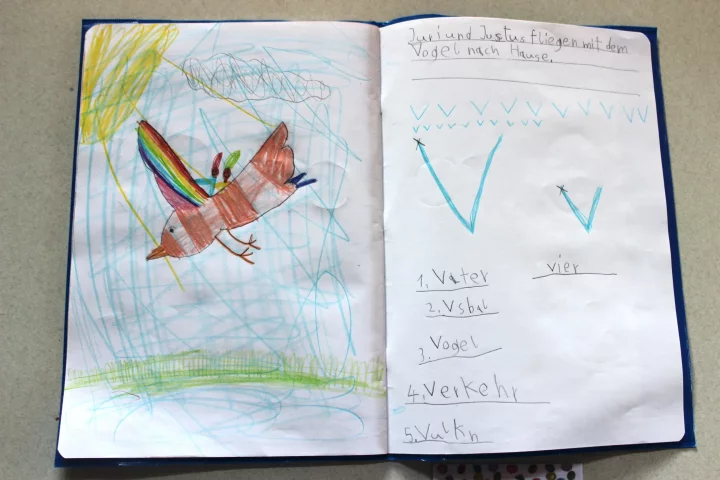 Juri und Justus fliegen mit dem
Vogel nach Hause.
V V V V V V V V V
v v v v v v v v v v
V v
1. Vater vier
2. Vsbal
3. Vogel
4. Verkehr
5. Vulkn